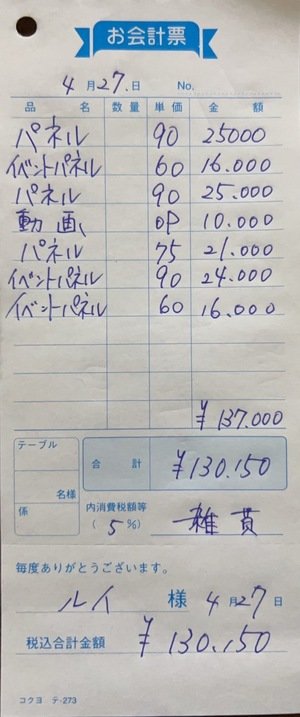 お会計票
4月27.日 No.
品名 数量 単価 金額
パネル 90 25000
イベントパネル 60 16.000
パネル 90 25.000
動画 OP 10.000
パネル 75 21.000
イベントパネル 90 24.000
イベントパネル 60 16.000
¥137.000
テーブル
名様
係
合計 ¥130.150
内消費税額等
(5%) 雑貨
毎度ありがとうございます。
ルイ 様 4月27日
税込合計金額 ¥130.150
コクヨ テ-273